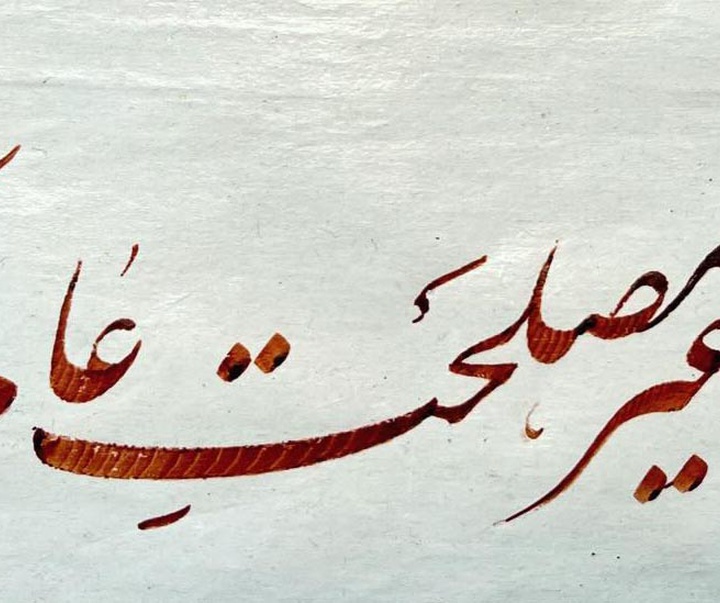 غیر مصلحتِ عا